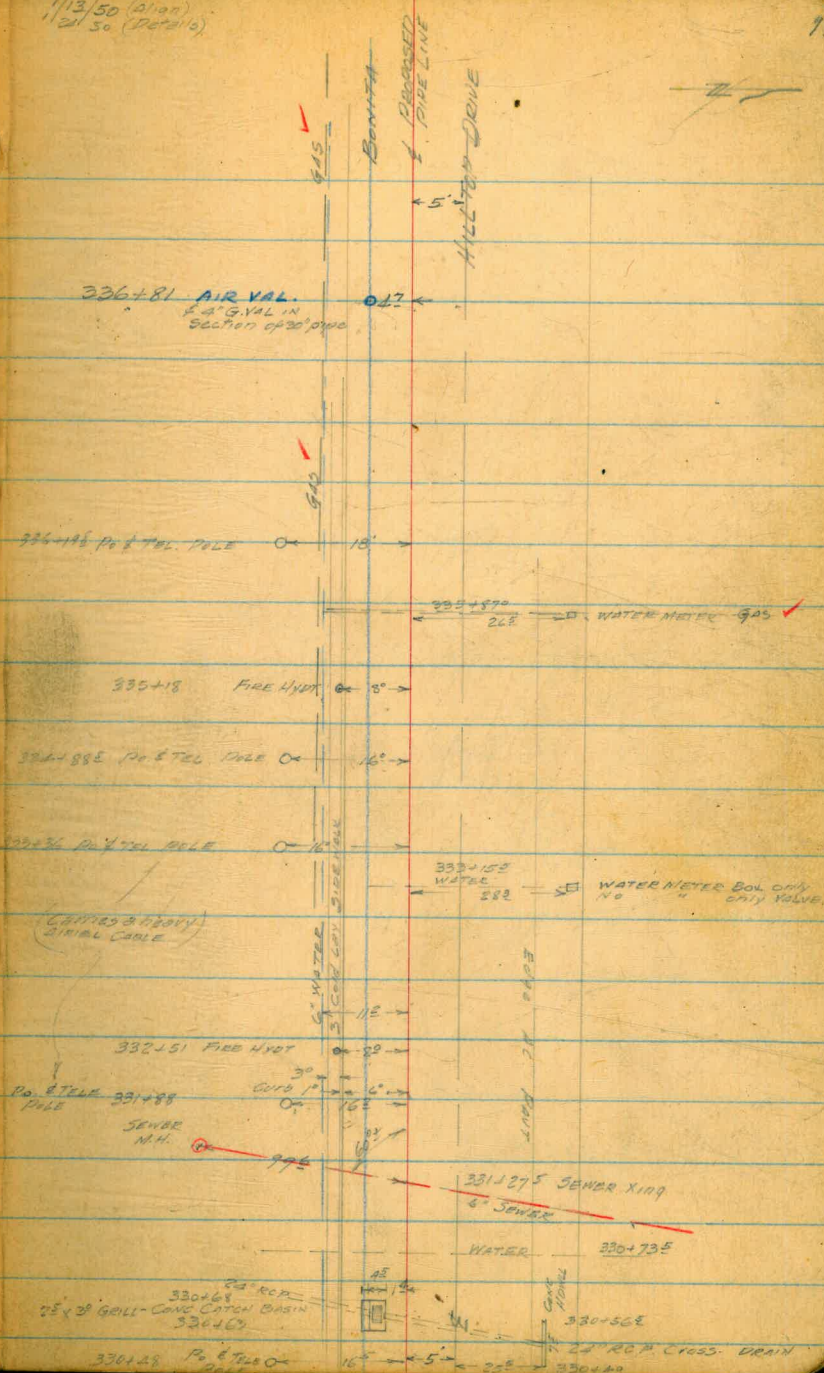 1/13/50 (Align)
50 (Details)
9
BONITA
℄ PROPOSED
PIPE LINE
HILLTOP DRIVE
GAS
5'
336+81 AIR VAL.
& 4" G. VAL IN
Section of 30" pipe
47
GAS
Po & TEL. POLE
18'
335+87
26
WATER METER GAS
335+18 FIRE HYDT
8
Po. & TEL POLE
16
Po & TEL POLE
16
333+15
WATER
28
WATER METER BOX only
No " only VALVE
(Carries a heavy)
AIRIEL CABLE
6" WATER
3' CONC LAY SIDEWALK
EDGE AC PAVT
11
332+51 FIRE HYDT
8
3
Curb 1 6
Po. & TELE
POLE
331+88
16
SEWER
M.H.
331+27 SEWER Xing
6" SEWER
WATER 330+73
24" RCP
330+68
GRILL-CONC CATCH BASIN
330+63
CONC
330+56
24" RCP CROSS-DRAIN
330+49
330+48 Po. & TELE
POLE
16
5'